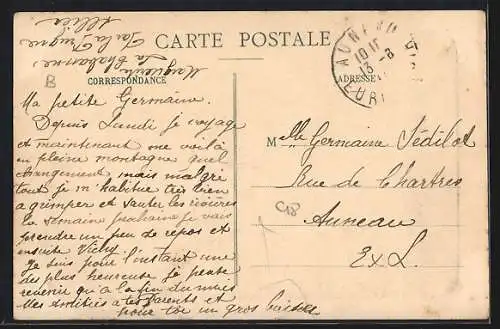 CARTE POSTALE
CORRESPONDANCE
ADRESSE
Marguerite
La Chabanne
par La
Allier
B
AUNEAU
10
13 - 8
EURE
Ma petite Germaine.
Depuis Lundi je voyage
et maintenant me voilà
en pleine montagne quel
changement mais malgré
tout je m'habitue très bien
a grimper et sauter les rivières
la semaine prochaine je vais
prendre un peu de repos et
ensuite Vichy
Je suis pour l'instant une
des plus heureuse je pense
revenir qu'à la fin du mois
Mes Amitiés à tes Parents et
pour toi un gros baiser
Melle Germaine Sédillot
Rue de Chartres
Auneau
E x L.